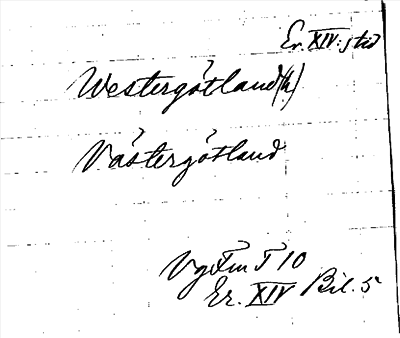 Er. XIV:s tid
Westergötland(h)
Västergötland
Vg Fm I 10
Er. XIV Bil. 5